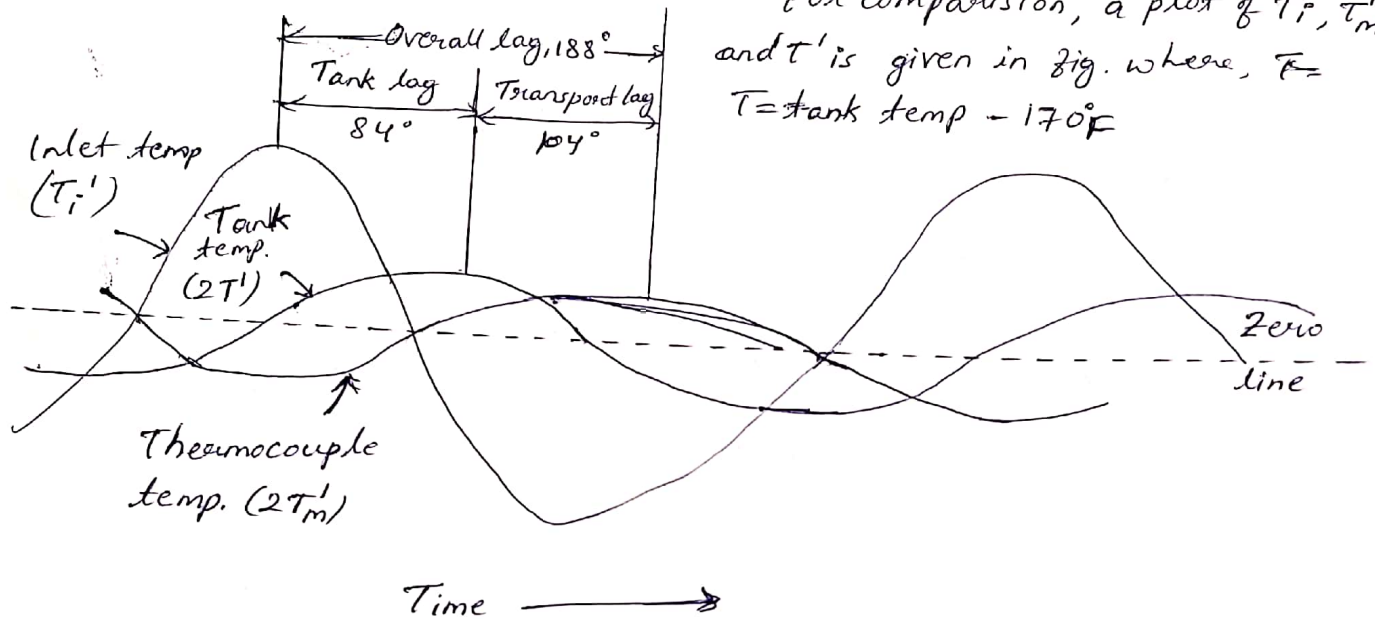 For comparision, a plot of Ti, T'm
and T' is given in fig. where, T=
T = tank temp - 170°F
Overall lag, 188°
Tank lag
84°
Transport lag
104°
Inlet temp
(Ti')
Tank
temp.
(2T')
Zero
line
Thermocouple
temp. (2T'm)
Time